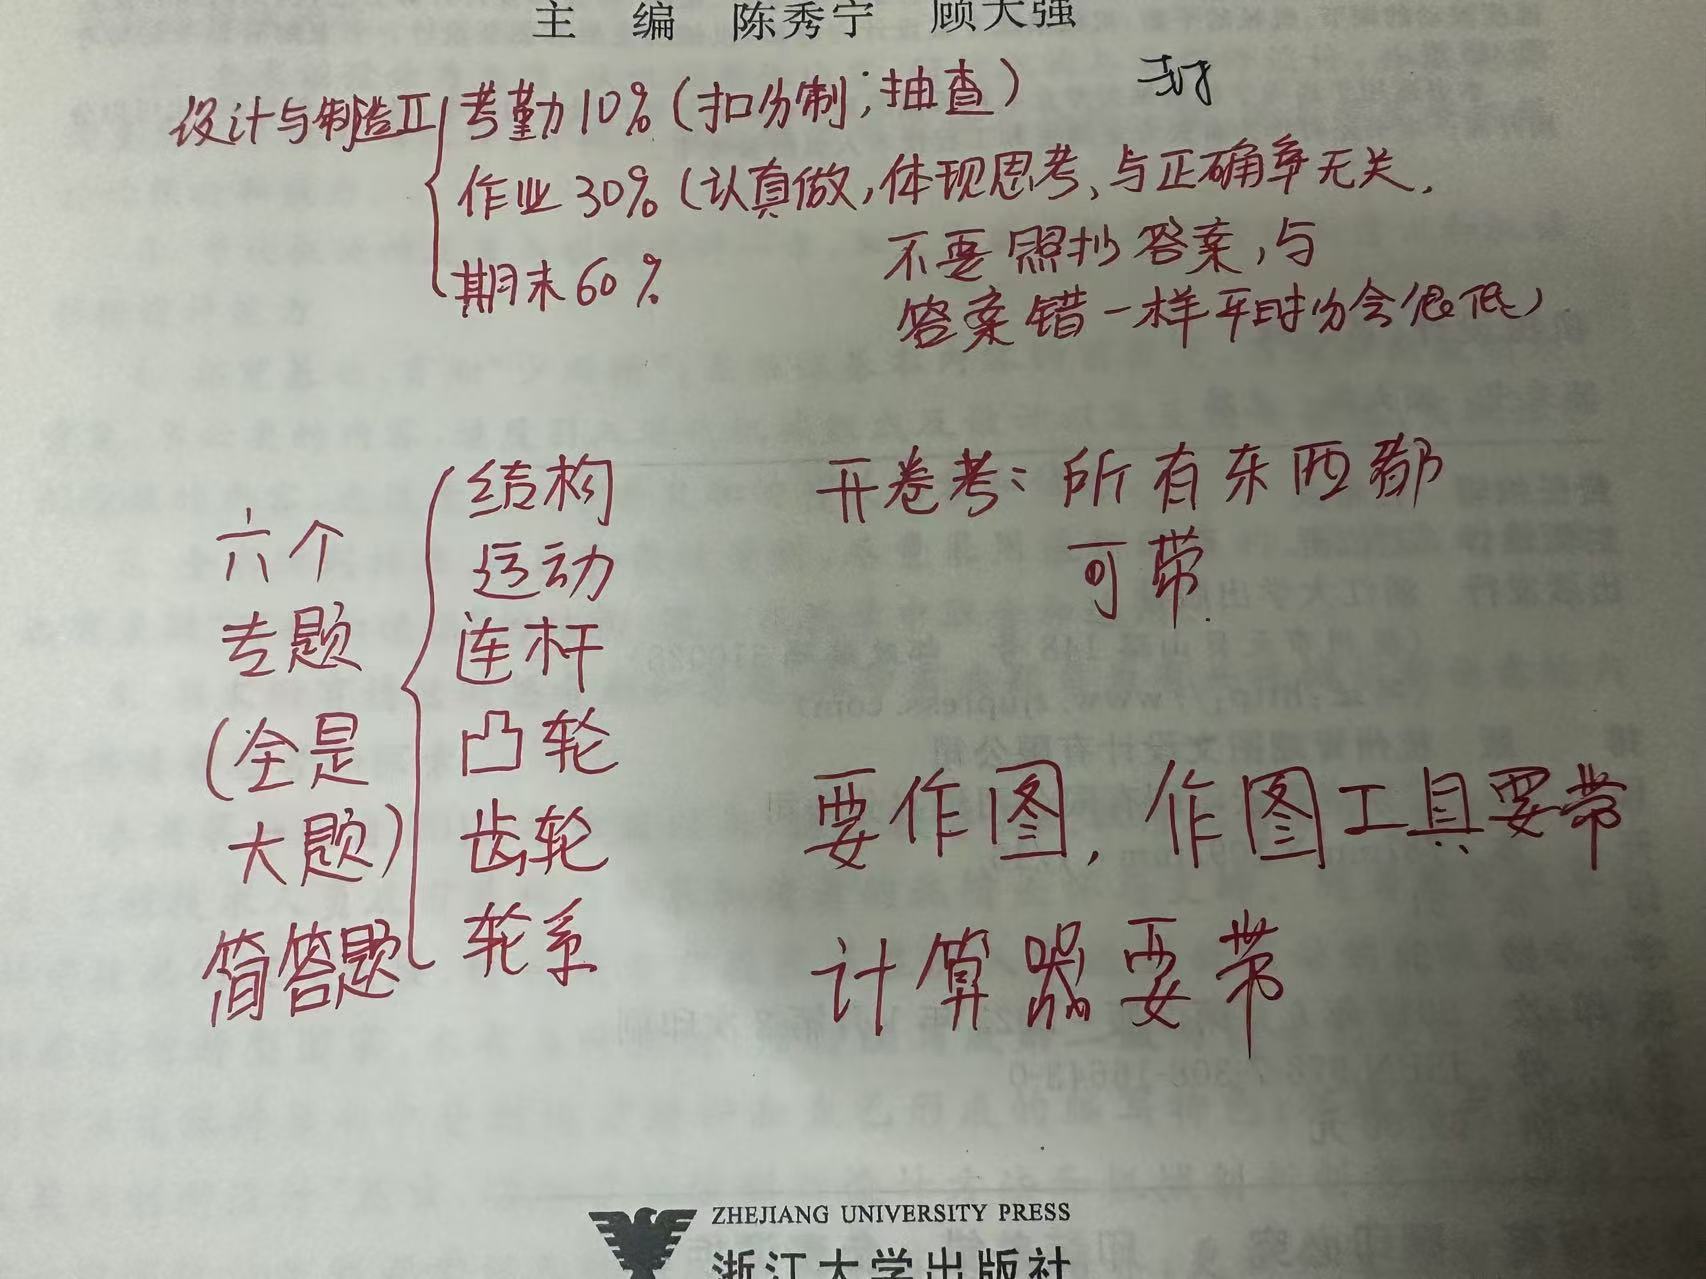 主 编 陈秀宁 顾大强
设计与制造Ⅱ
考勤10%(扣分制;抽查)
作业30%(认真做,体现思考、与正确率无关.
不要照抄答案,与
答案错一样平时分会很低)
期末60%
六个
专题
(全是
大题)
简答题
结构
运动
连杆
凸轮
齿轮
轮系
开卷考:所有东西都
可带
要作图,作图工具要带
计算器要带
ZHEJIANG UNIVERSITY PRESS
浙江大学出版社